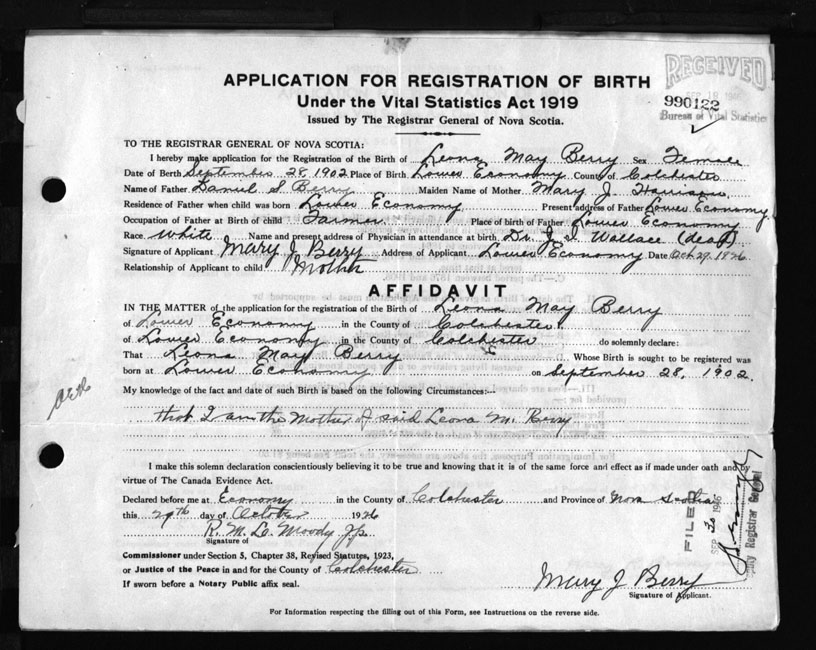 APPLICATION FOR REGISTRATION OF BIRTH
Under the Vital Statistics Act 1919
Issued by The Registrar General of Nova Scotia.
RECEIVED
990122
Bureau of Vital Statistics
TO THE REGISTRAR GENERAL OF NOVA SCOTIA:
I hereby make application for the Registration of the Birth of Leona May Berry Sex Female
Date of Berth September 28, 1902 Place of Birth Lower Economy County of Colchester
Name of Father Daniel S Berry Maiden Name of Mother Mary J. Harrison
Residence of Father when child was born Lower Economy Present address of Father Lower Economy
Occupation of Father at Birth of child Farmer Place of birth of Father Lower Economy
Race White Name and present address of Physician in attendance at birth, Dr. Wallace
Signature of Applicant Mary J Berry Address of Applicant Lower Economy Date Oct 29, 1926
Relationship of Applicant to child Mother
AFFIDAVIT
IN THE MATTER of the application for the registration of the Birth of Leona May Berry
of Lower Economy in the County of Colchester
of Lower Economy in the County of Colchester do solemnly declare:
That Leona May Berry Whose Birth is sought to be registered was
born at Lower Economy on September 28, 1902.
My knowledge of the fact and date of such Birth is based on the following Circumstances:—
that I am the Mother of said Leona M. Berry
I make this solemn declaration conscientiously believing it to be true and knowing that is of the same force and effect as if made under oath and by
virtue of The Canada Evidence Act.
Declared before me at Economy in the County of Colchester and Province of Nova Scotia
this 29th day of October 1926
R. M. L. Moody J.p.
Signature of
Commissioner under Section 5, Chapter 38, Revised Statutes, 1923,
or Justice of the Peace in and for the County of Colchester
If sworn before a Notary Public affix seal.
Mary J Berry
Signature of Applicant.
FILED
Deputy Registrar General
For Information respecting the filling out of this Form, see Instructions on the reverse side.